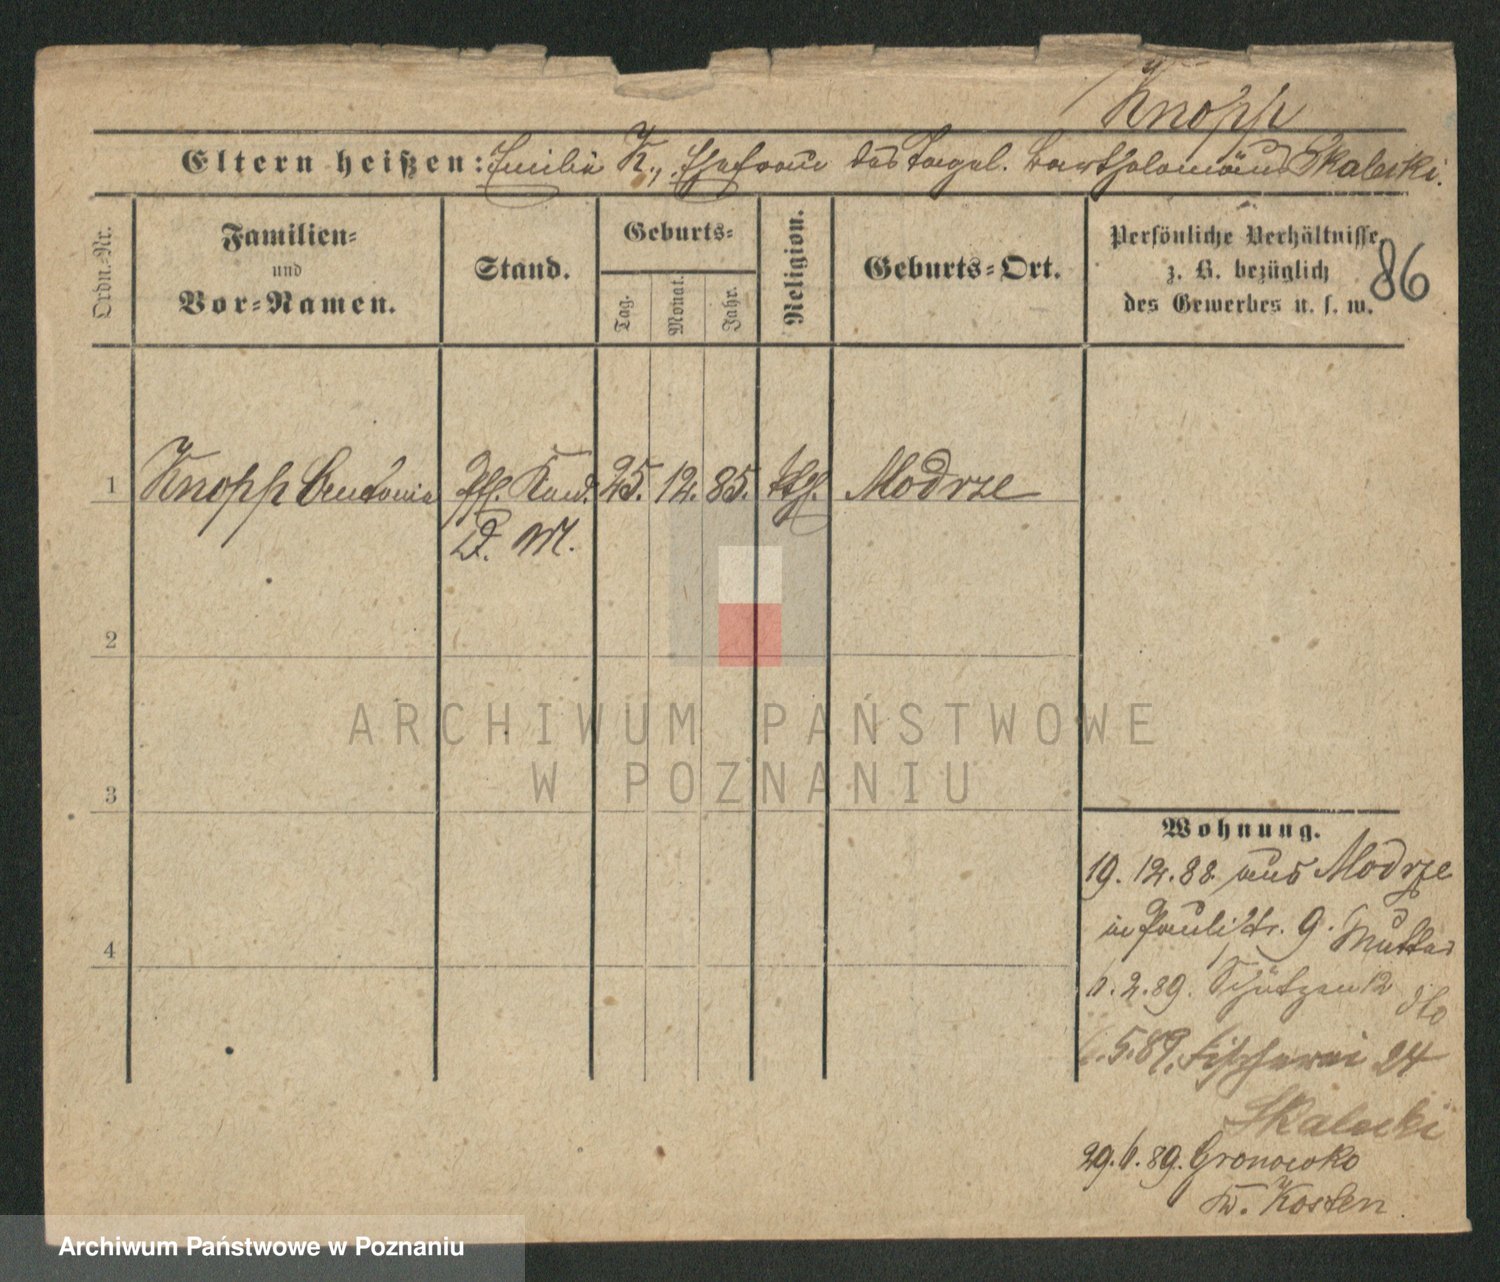 Knopp
Eltern heißen: Emilie K., Ehefrau des Tagel. Bartholomäus Skalecki.
Ordn.-Nr.
Familien-
und
Vor-Namen.
Stand.
Geburts-
Tag.
Monat.
Jahr.
Religion.
Geburts-Ort.
Persönliche Verhältnisse,
z. B. bezüglich
des Gewerbes u. s. w.
86
1 Knopp Antonie Pfl. Kind. 25. 12. 85. kth. Modrze
D. M.
2
ARCHIWUM PAŃSTWOWE
W POZNANIU
3
Wohnung.
19. 12. 88 aus Modrze
in Paulistr. 9. Mutter
6. 2. 89. Schützen 12 dto
6. 5. 89. Fischerei 24
Skalecki
29. 6. 89. Gronowko
Kr. Kosten.
4
Archiwum Państwowe w Poznaniu